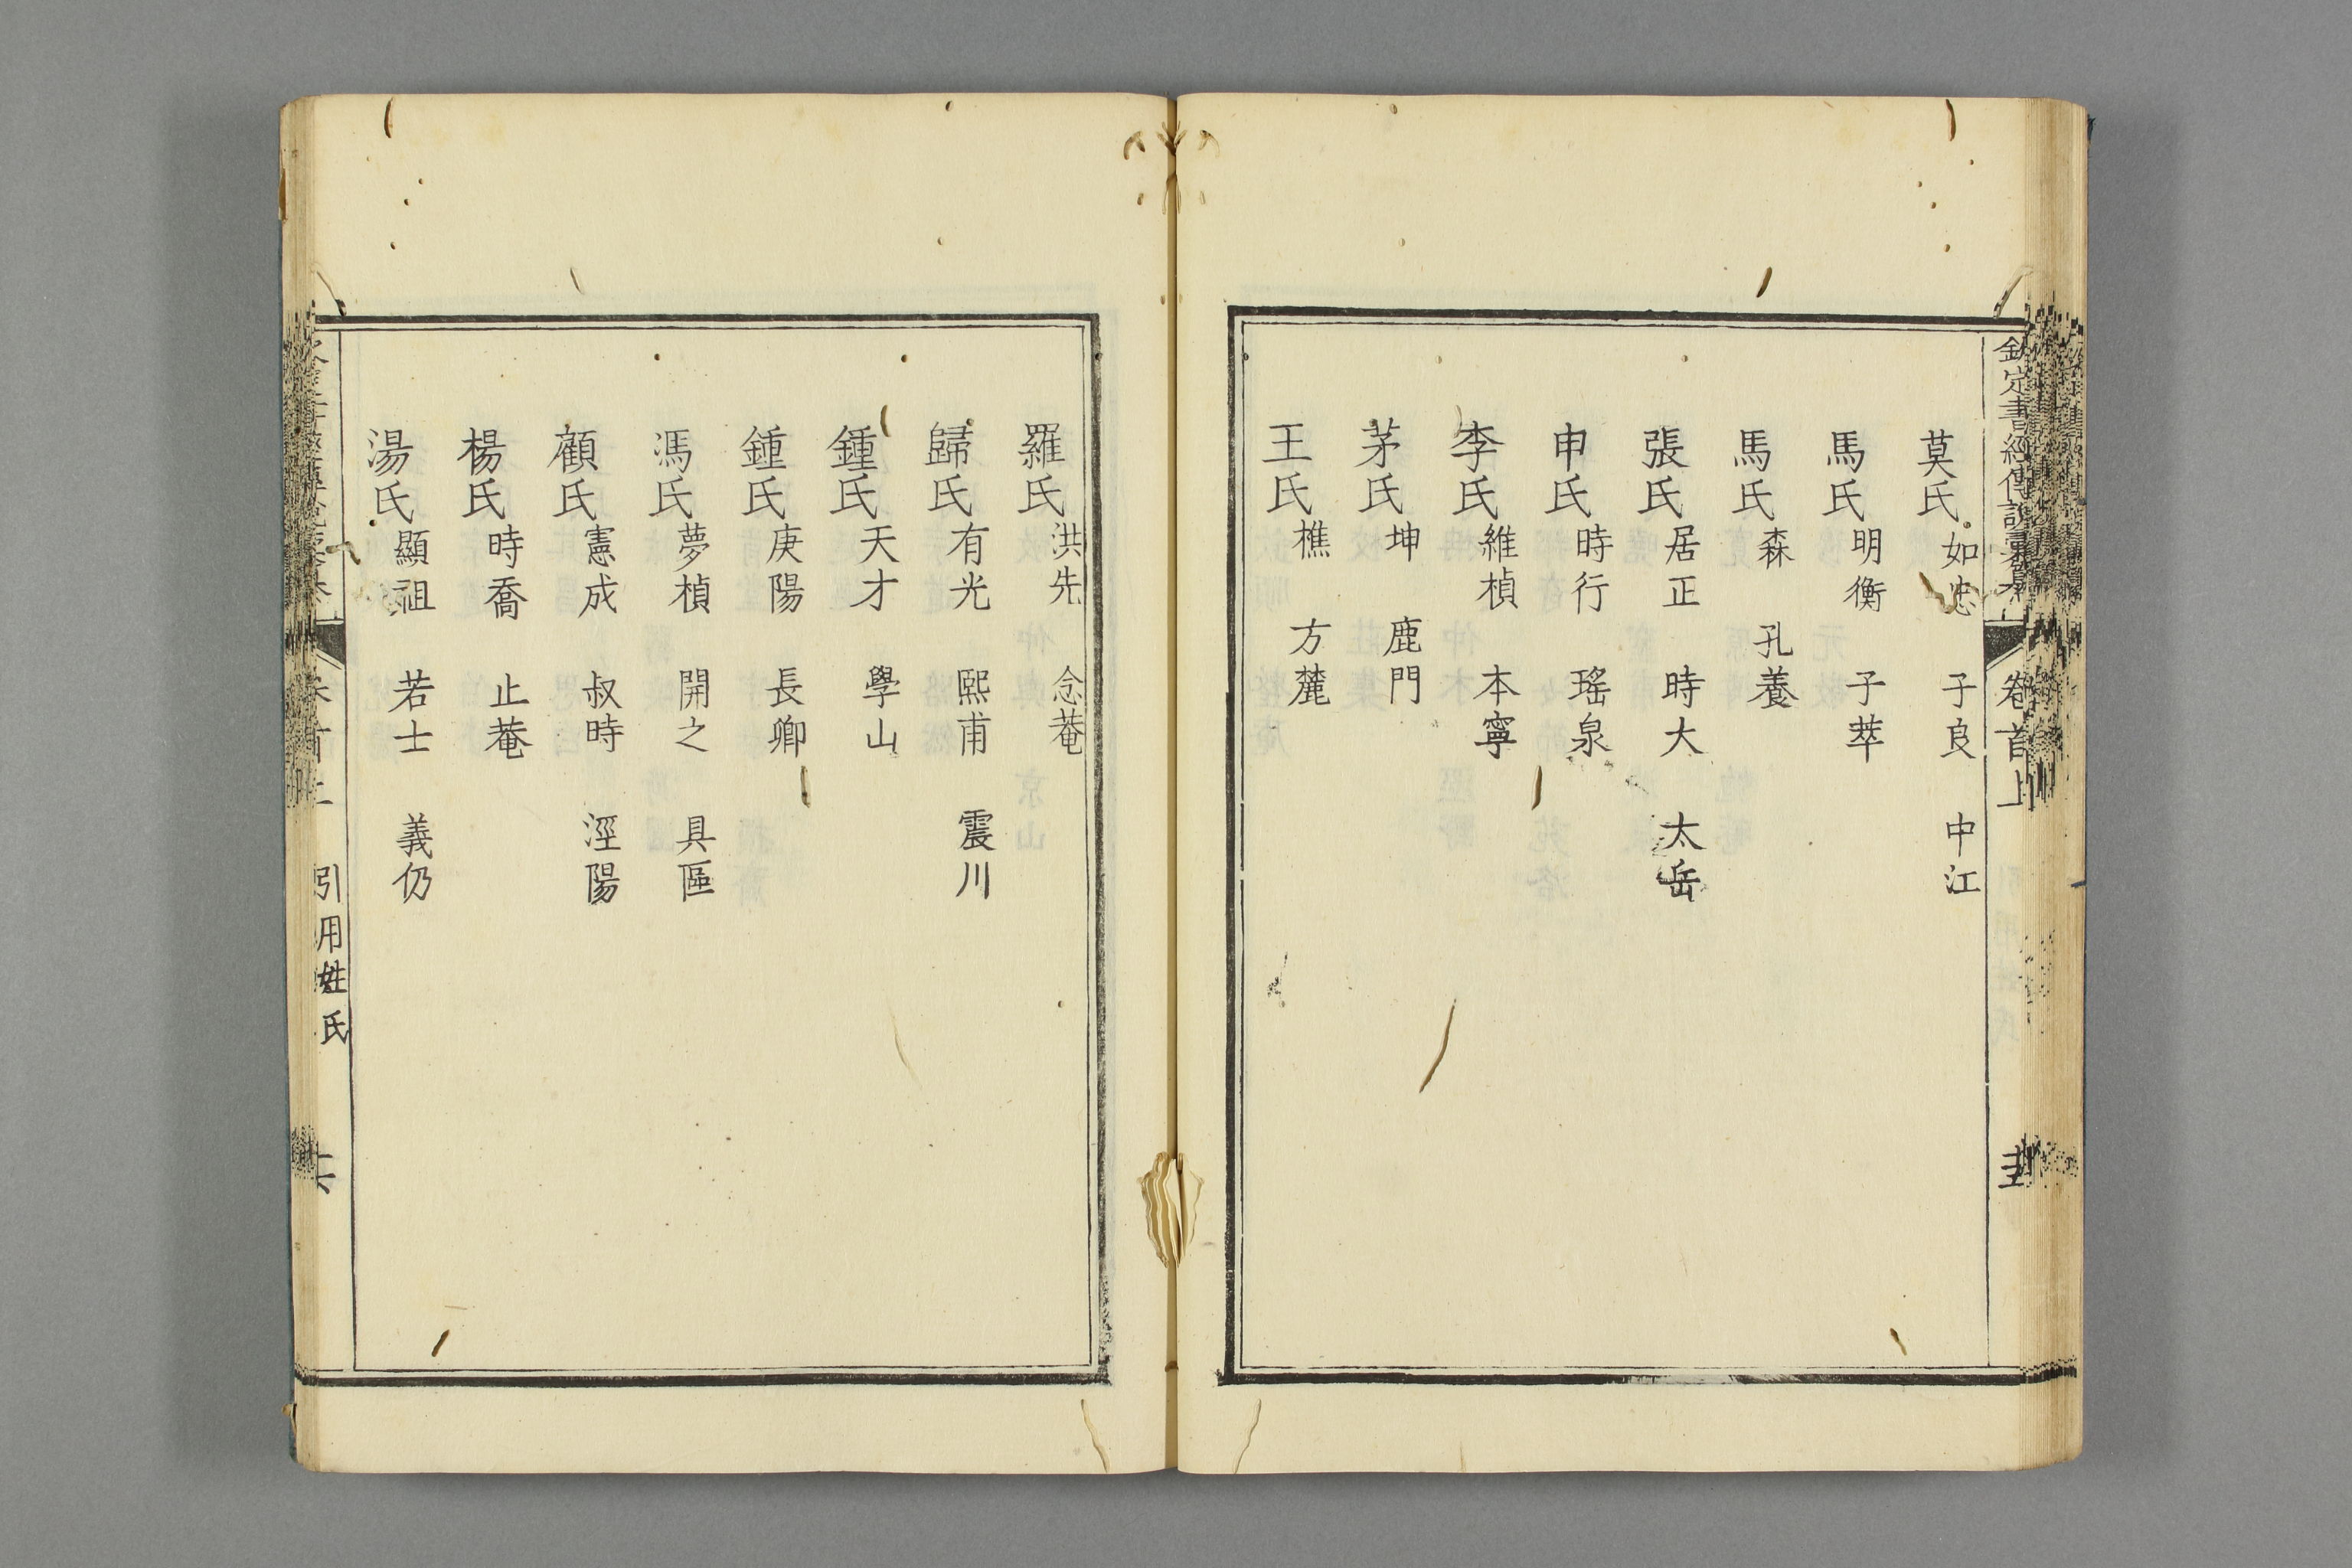 欽定書經傳說彙纂 卷首上
莫氏如忠 子良 中江
馬氏明衡 子莘
馬氏森 孔養
張氏居正 時大 太岳
申氏時行 瑤泉
李氏維楨 本寧
茅氏坤 鹿門
王氏樵 方麓
羅氏洪先 念菴
歸氏有光 熙甫 震川
鍾氏天才 學山
鍾氏庚陽 長卿
馮氏夢楨 開之 具區
顧氏憲成 叔時 涇陽
楊氏時喬 止菴
湯氏顯祖 若士 義仍
卷首上 引用姓氏